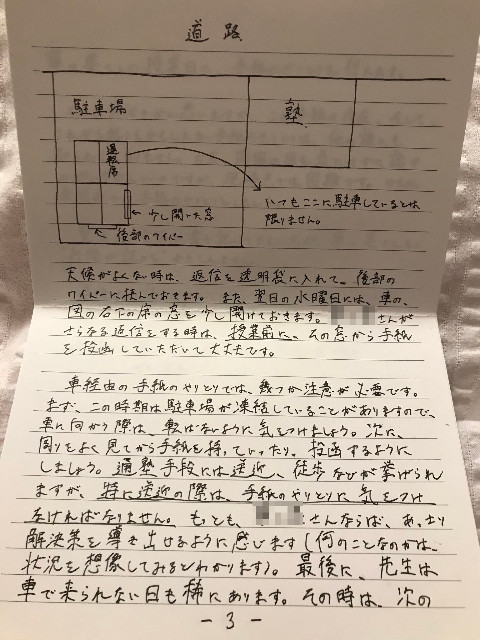 道路
駐車場
塾
運転席
いつもここに駐車しているとは
限りません。
少し開いた窓
後部のワイパー
天候がよくない時は、返信を透明袋に入れて、後部の
ワイパーに挟んでおきます。また、翌日の水曜日には、車の、
図の右下の席の窓を少し開けておきます。さんが
さらなる返信をする時は、授業前に、その窓から手紙
を投函していただいて大丈夫です。
車経由の手紙のやりとりでは、幾つか注意が必要です。
まず、この時期は駐車場が凍結していることがありますので、
車に向かう際は、転ばないように気をつけましょう。次に、
周りをよく見てから手紙を持っていったり、投函するように
しましょう。通塾手段には送迎、徒歩などが挙げられ
ますが、特に送迎の際は、手紙のやりとりに気をつけ
なければなりません。もっとも、さんならば、あっさり
解決策を導き出せるように感じます(何のことなのかは、
状況を想像してみるとわかります)。最後に、先生は
車で来られない日も稀にあります。その時は、次の
-3-